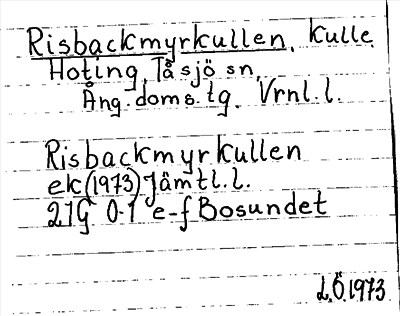 Risbackmyrkullen, Kulle
Hoting, Tåsjö sn,
Ång. doms.tg. Vrnl. l.
Risbackmyrkullen
ek(1973) Jämtl. l.
21G 0-1 e-f Bosundet
L.Ö.1973